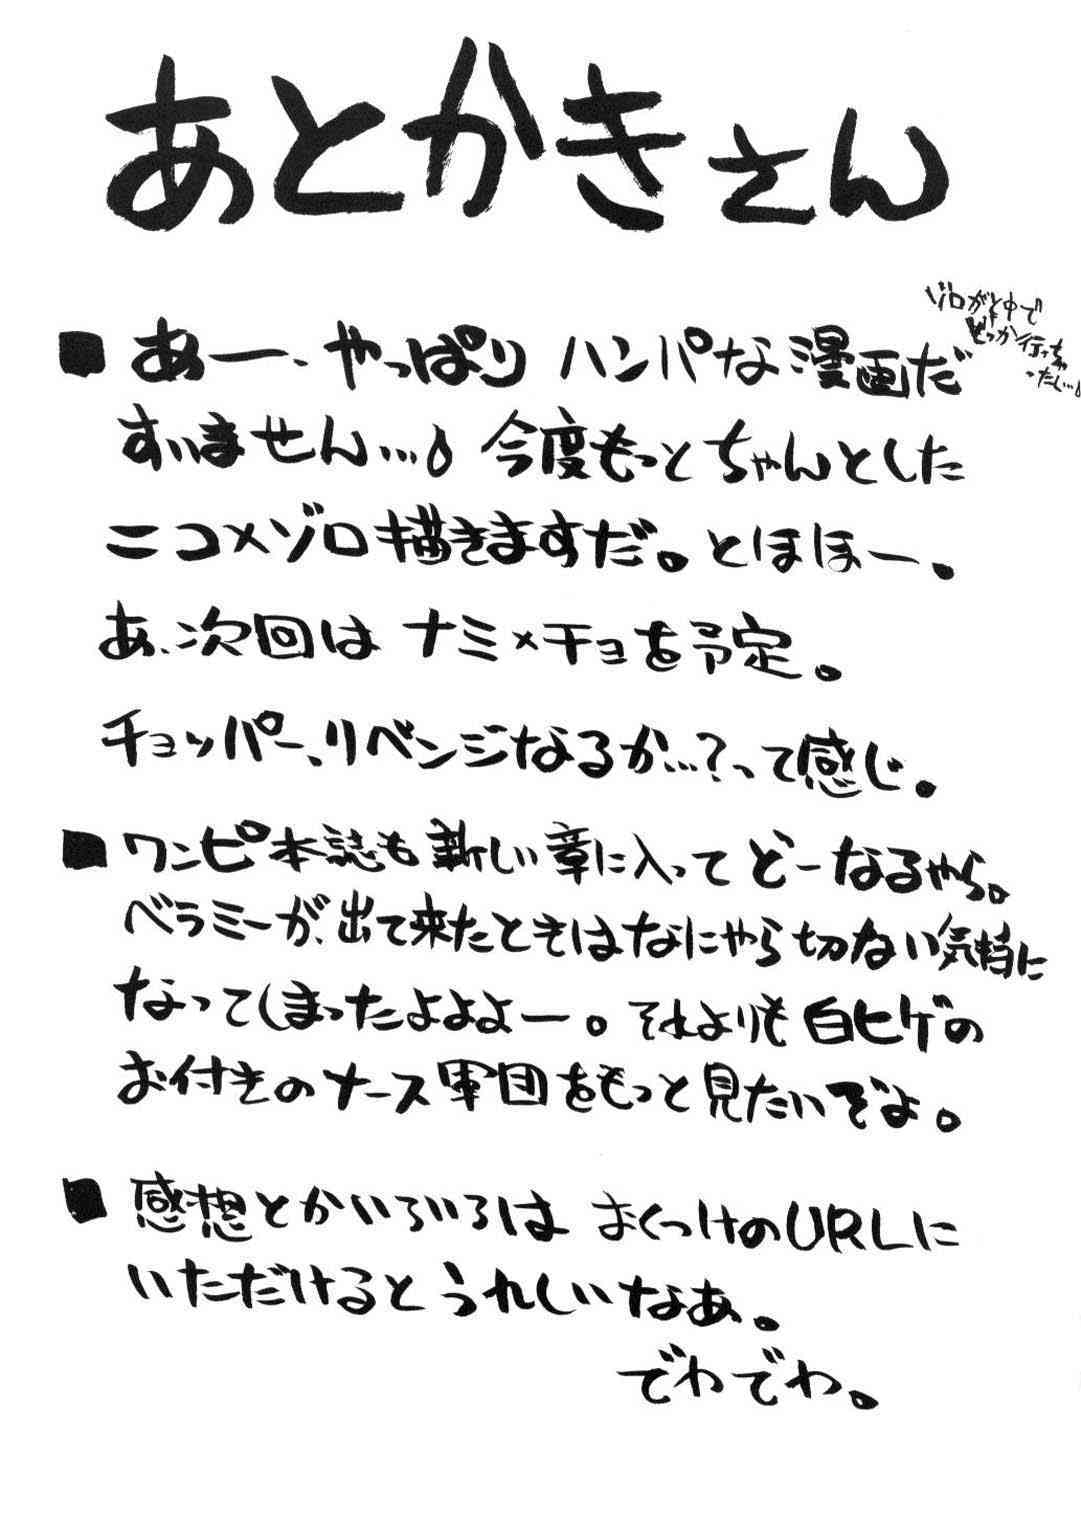 あとかきさん
■ あー、やっぱり ハンパな漫画だ
ゾロが途中で
どっか行っちゃ
ったし…
すいません… 今度もっとちゃんとした
ニコ×ゾロ描きますだ。とほほー。
あ、次回は ナミ×チョを予定。
チョッパー、リベンジなるか…?って感じ。
■ ワンピ本誌も新しい章に入って どーなるやら。
ベラミーが、出て来たときはなにやら切ない気持に
なってしまったよよよー。それよりも白ヒゲの
お付きのナース軍団をもっと見たいぞよ。
■ 感想とかいろいろは おくつけのURLに
いただけるとうれしいなあ。
でわでわ。